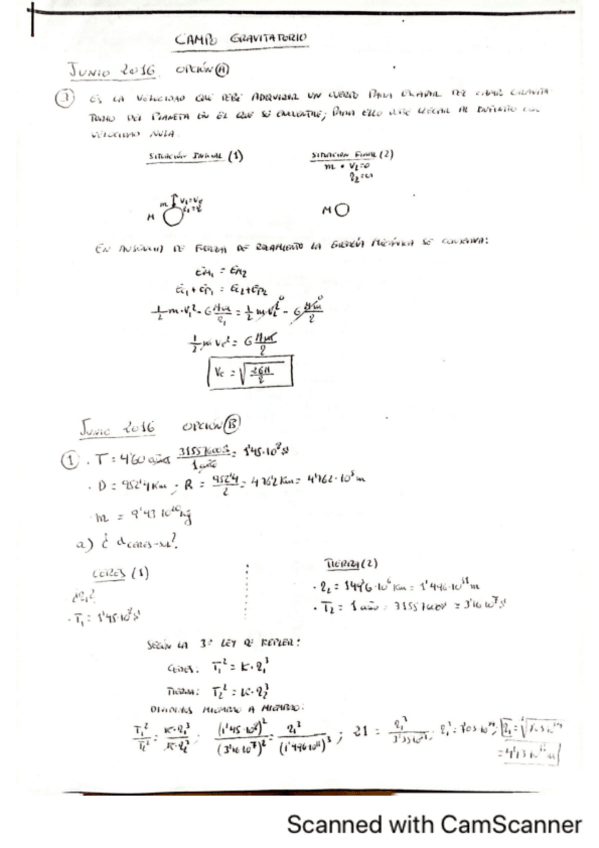 CAMPO GRAVITATORIO
JUNIO 2016 OPCIÓN A
3 ES LA VELOCIDAD QUE DEBE ADQUIRIR UN CUERPO PARA ESCAPAR DEL CAMPO GRAVITA
TORIO DEL PLANETA EN EL QUE SE ENCUENTRE; PARA ELLO DEBE LLEGAR AL INFINITO CON
VELOCIDAD NULA.
SITUACIÓN INICIAL (1) SITUACIÓN FINAL (2)
m • V2=0
r2=∞
m V1=Ve
r1=R
M M
EN AUSENCIA DE FUERZA DE ROZAMIENTO LA ENERGÍA MECÁNICA SE CONSERVA:
Em1 = Em2
Ec1 + Ep1 = Ec2 + Ep2
1/2 m·V1² - G Mm/r1 = 1/2 m V2² - G Mm/r2
1/2 m Ve² = G Mm/R
Ve = √(2GM/R)
JUNIO 2016 OPCIÓN B
1 · T = 4'60 años 31557600 s/1 año = 1'45·10⁸ s
· D = 952'4 Km ; R = 952'4/2 = 476'2 Km = 4'762·10⁵ m
· m = 9'43·10²⁰ kg
a) ¿ d ceres-sol?
CERES (1) TIERRA (2)
¿r1?
· r2 = 149'6·10⁶ Km = 1'496·10¹¹ m
· T1 = 1'45·10⁸ s
· T2 = 1 año = 31557600 s = 3'16·10⁷ s
SEGÚN LA 3ª LEY DE KEPLER:
CERES: T1² = K·r1³
TIERRA: T2² = K·r2³
DIVIDIMOS MIEMBRO A MIEMBRO:
T1²/T2² = K·r1³/K·r2³ ; (1'45·10⁸)²/(3'16·10⁷)² = r1³/(1'496·10¹¹)³ ; 21 = r1³/3'35·10³³ ;